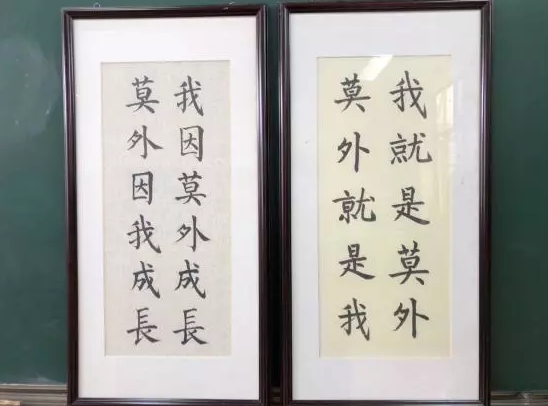 我因莫外成長
莫外因我成長
我就是莫外
莫外就是我